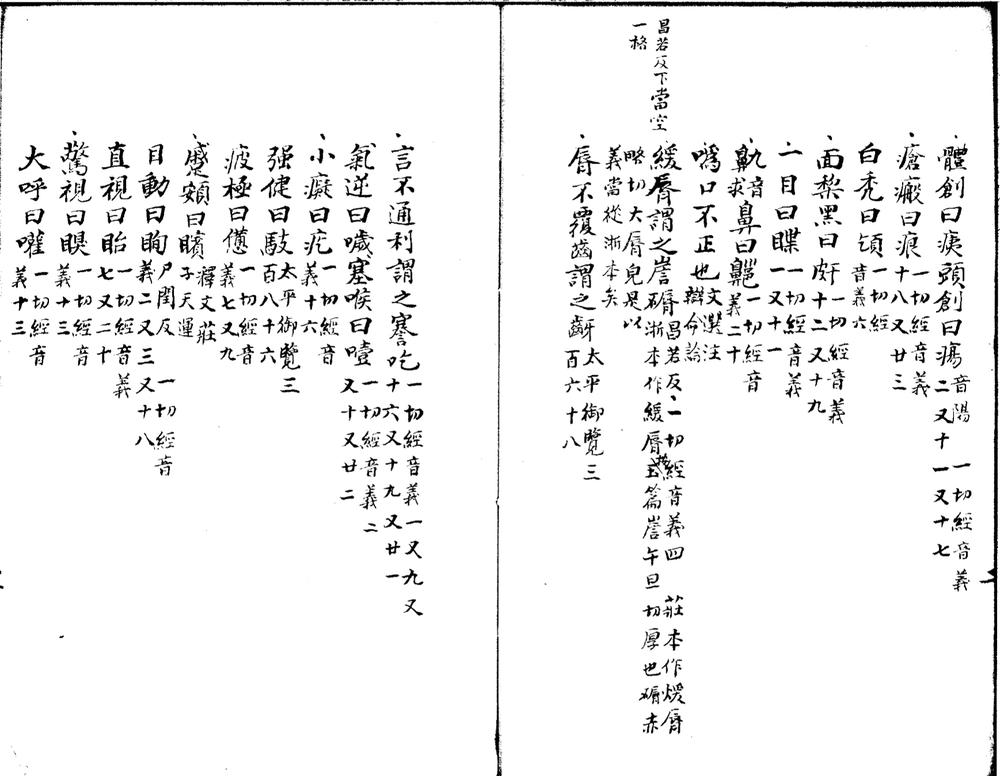 昌若反下當空
一格
體創曰痍頭創曰瘍音陽 一切經音義
二又十一又十七
瘡瘢曰痕一切經音義
十八又廿三
白秃曰頃一切經
音義六
面黎黑曰皯一切經音義
十二又十九
一目曰䁋一切經音義
一又十一
鼽音求鼻曰齆一切經音
義二十
喎口不正也文選注
辯命論
緩脣謂之𡺽磭昌若反、一切經音義四 莊本作煖脣
浙本作緩脣按玉篇𡺽午旦切厚也磭赤
略切大脣皃是以
義當從浙本矣
脣不覆齒謂之齖太平御覽三
百六十八
言不通利謂之謇吃一切經音義一又九又
十六又十九又廿一
氣逆曰噦塞喉曰噎一切經音義二
又十又廿二
小癡曰疙一切經音
義十六
强健曰䭾太平御覽三
百八十六
疲極曰憊一切經音
義七又九
蹙頞曰矉釋文莊
子天運
目動曰眴尸閏反 一切經音
義二又三又十八
直視曰眙一切經音義
七又二十
驚視曰瞁一切經音
義十三
大呼曰嚾一切經音
義十三